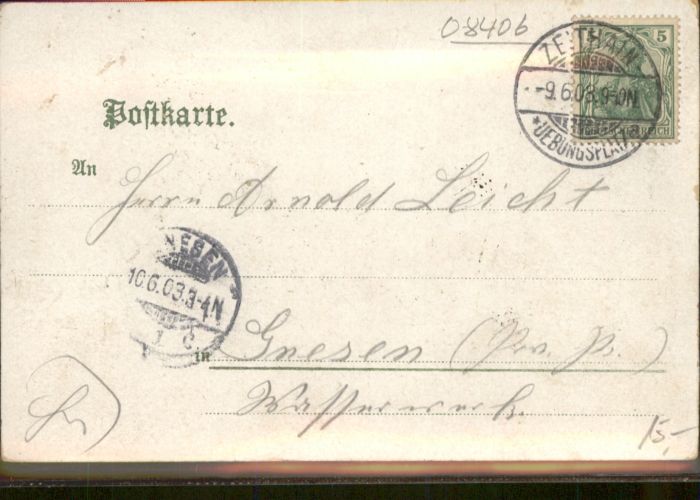 08406
5
ZEITHAIN
-9.6.03.9-10N
*UEBUNGSPLATZ*
DEUTSCHES REICH
Postkarte.
An
Herrn Arnold Leicht
GNESEN
10.6.03.3-4N
1 c
in Gnesen (Pr. P.)
Wasserwerk.
15,-